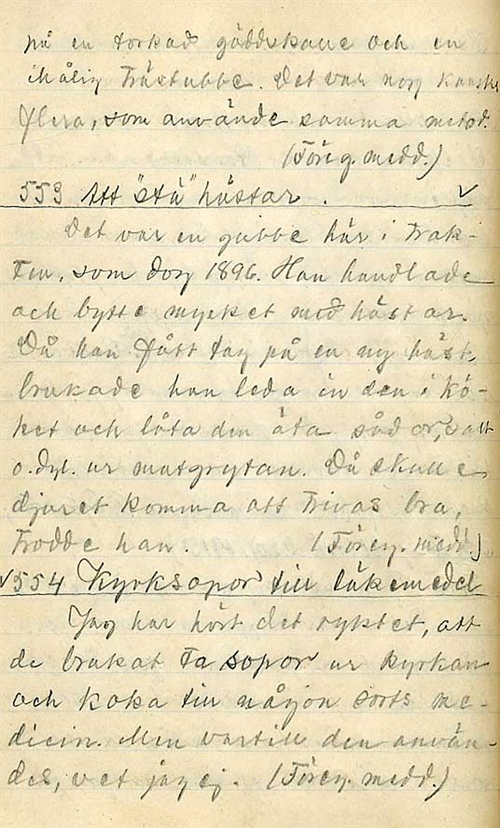 på en torkad gäddskalle och en
ihålig trästubbe. Det var nog kanske
flera, som använde samma metod.
(Föreg. medd.)
553 Att "stå" hästar. ✓
Det var en gubbe här i trak-
ten, som dog 1896. Han handlade
och bytte mycket med hästar.
Då han fått tag på en ny häst,
brukade han leda in den i kö-
ket och låta den äta
o. dyl. ur matgrytan. Då skulle
djuret komma att trivas bra,
trodde han. (Föreg. medd.)
√554 Kyrksopor till läkemedel
Jag har hört det ryktet, att
de brukat ta sopor ur kyrkan
och koka till någon sorts me-
dicin. Men vartill den använ-
des, vet jag ej. (Föreg. medd.)